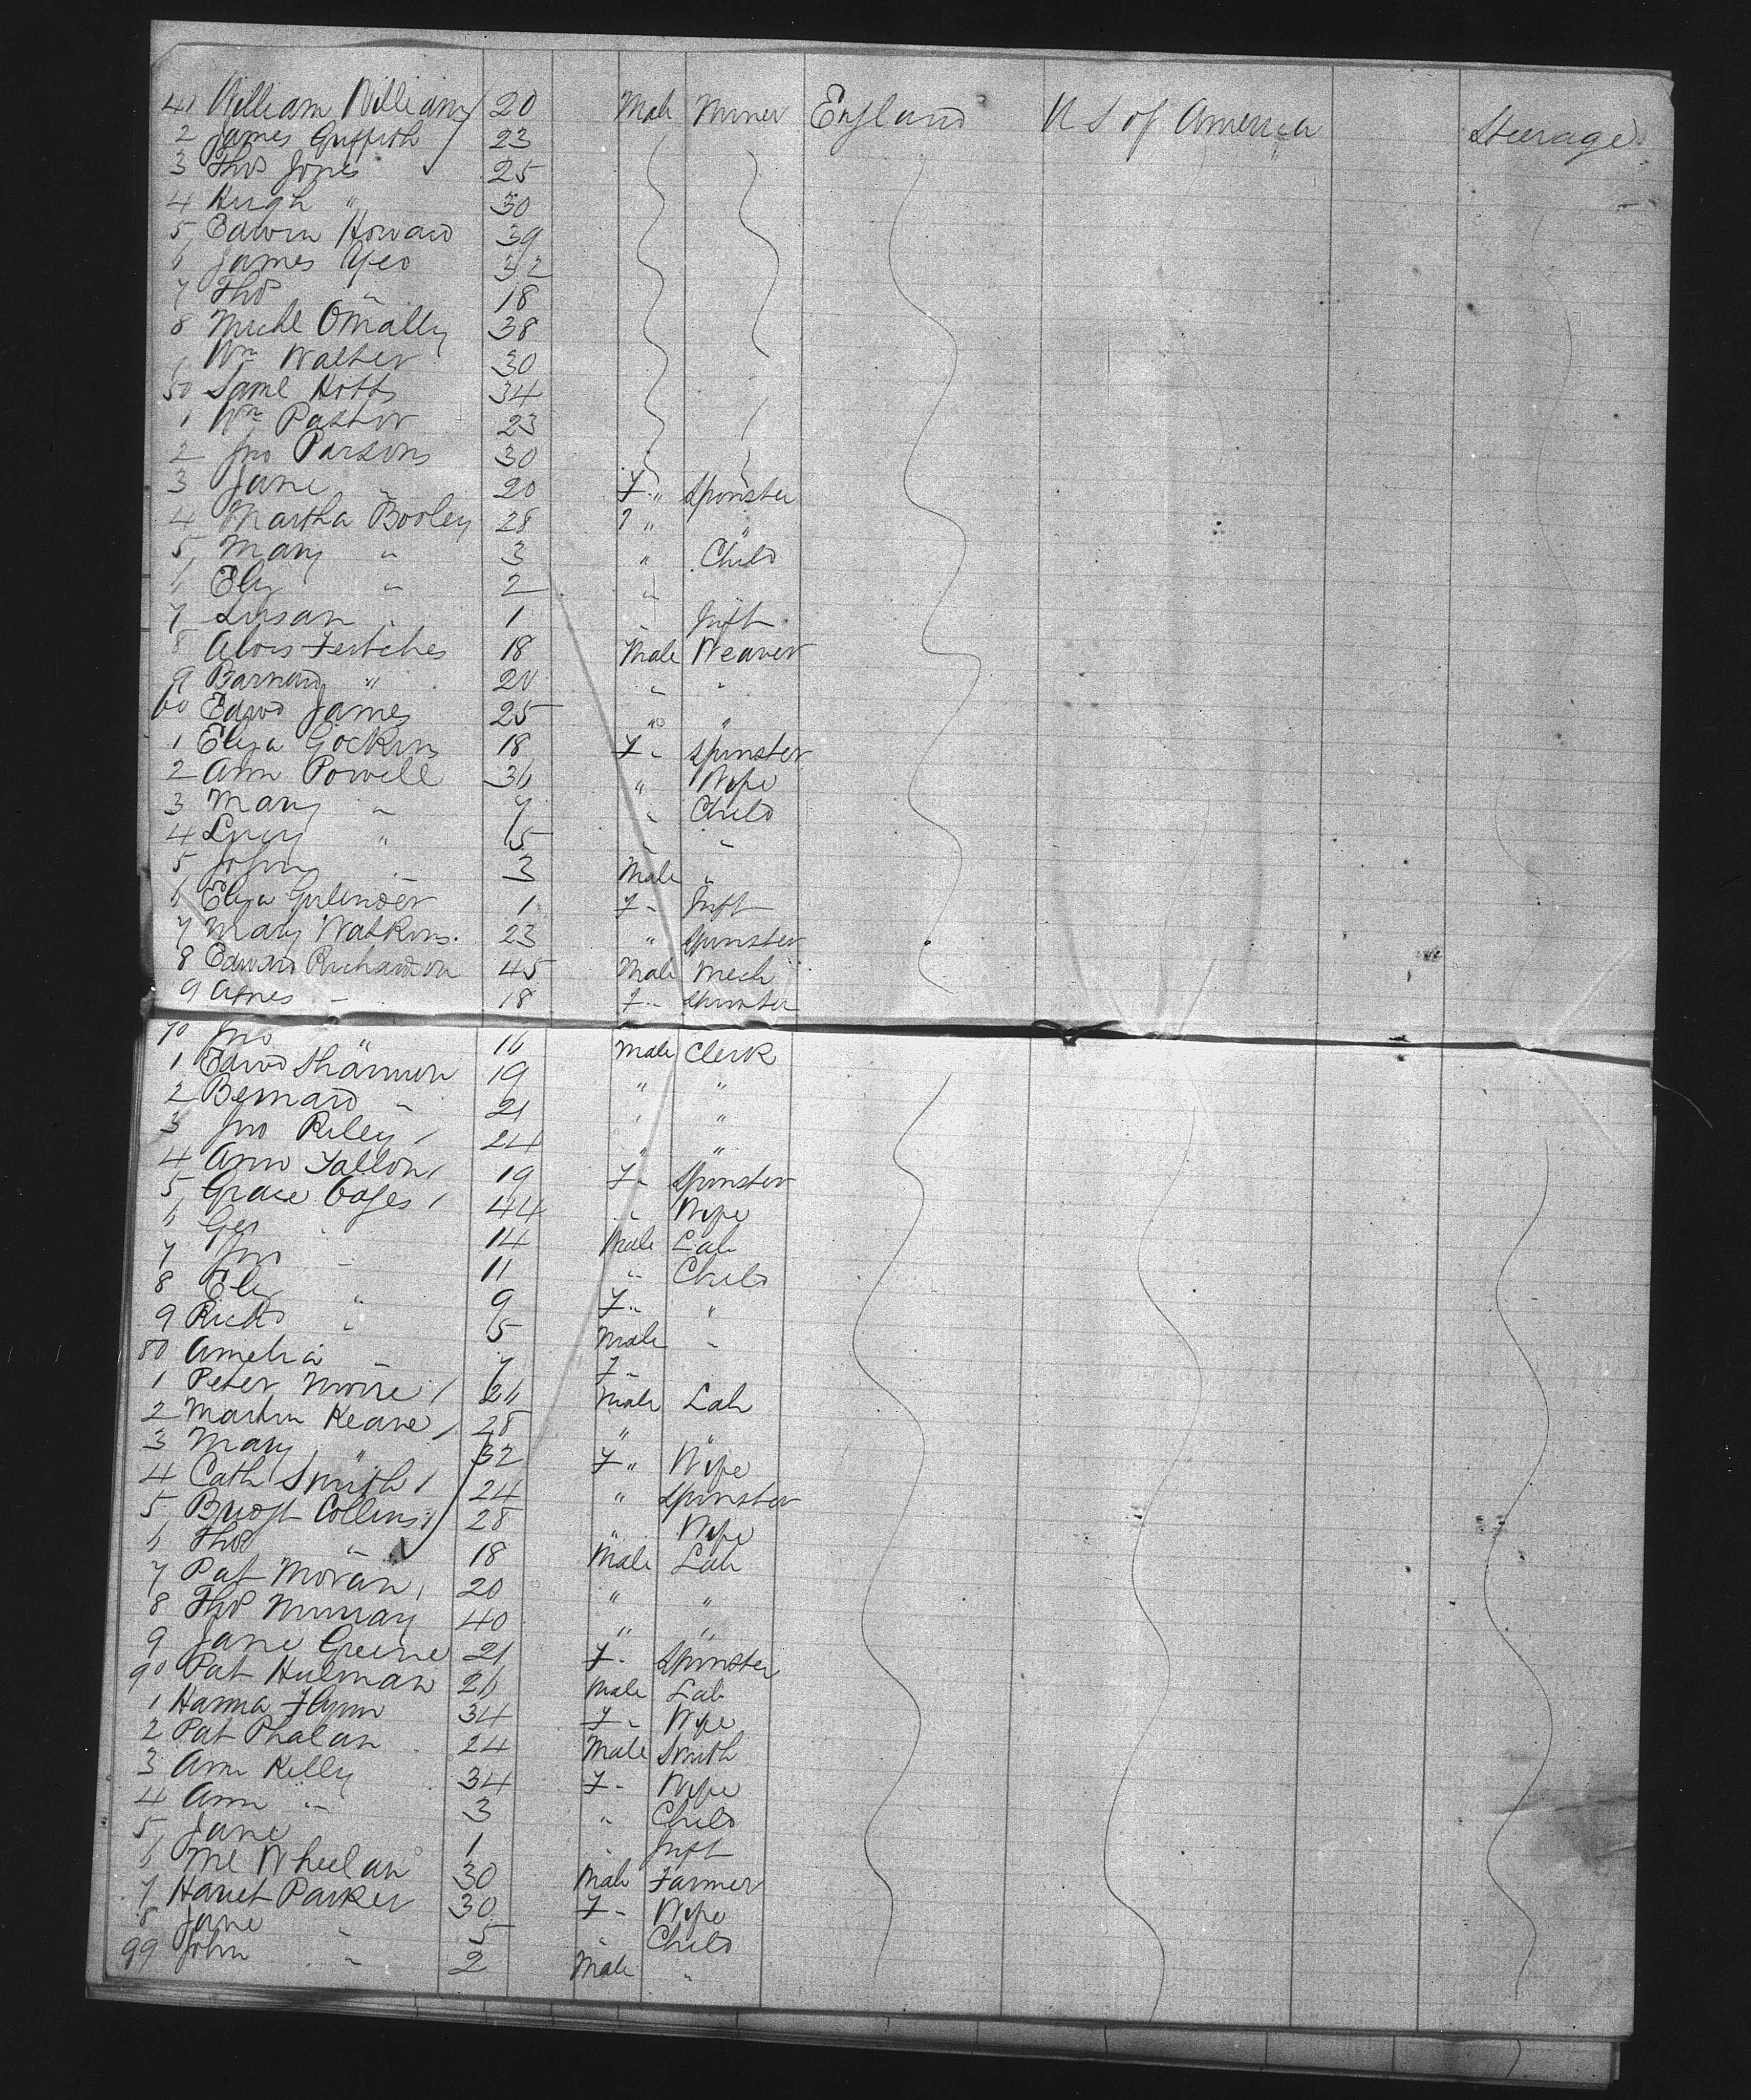 41 William Williams 20 Male Miner England U S of America Steerage
2 James Griffith 23
3 Thos Jones 25
4 Hugh " 30
5 Edwin Howard 39
6 James Yeo 32
7 Thos " 18
8 Michl OMally 38
Wm Walter 30
50 Saml Hotts 34
1 Wm Pastor 23
2 Jno Parsons 30
3 Jane " 20 F " Spinster
4 Martha Booley 28 " "
5 Mary " 3 " Child
6 Eliz " 2 "
7 Susan " 1 " Inft
8 Alois Fertches 18 Male Weaver
9 Barnard " 20 " "
60 Edwd James 25 " "
1 Eliza Gockins 18 F " Spinster
2 Ann Powell 36 " Wife
3 Mary " 7 " Child
4 Lucy " 5 " "
5 John " 3 Male "
6 Eliza 1 F " Inft
7 Mary Watkins 23 " Spinster
8 Edward Richardson 45 Male Mech
9 Agnes " 18 F " Spinster
70 Jno " 16 Male Clerk
1 Edwd Shannon 19 " "
2 Bernard " 21 " "
3 Jno Riley 24 " "
4 Ann Fallon 19 F " Spinster
5 Grace 44 " Wife
6 Geo " 14 Male Lab
7 Jno " 11 " Child
8 Eliz " 9 F " "
9 Richd " 5 Male "
80 Amelia " 7 F "
1 Peter Moore 26 Male Lab
2 Martin Keane 28 " "
3 Mary " 32 F " Wife
4 Cath Smith 24 " Spinster
5 Bridgt Collins 28 " Wife
6 Thos " 18 Male Lab
7 Pat Moran 20 " "
8 Thos Murray 40 " "
9 Jane Greene 21 F " Spinster
90 Pat Hulman 26 Male Lab
1 Hanna Flynn 34 F " Wife
2 Pat Phalan 24 Male Smith
3 Ann Kelly 34 F " Wife
4 Ann " 3 " Child
5 Jane 1 " Inft
6 Ml Wheelan 30 Male Farmer
7 Harriet Parker 30 F " Wife
8 Jane " 5 " Child
99 John " 2 Male "